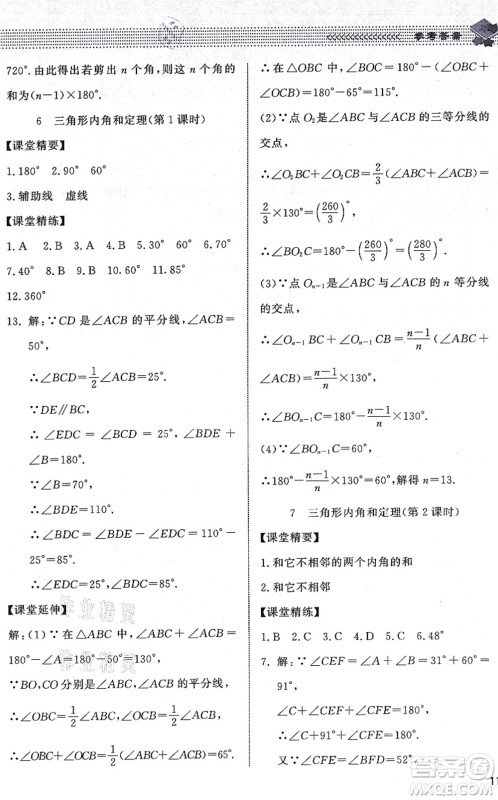 参考答案
720°.由此得出若剪出 n 个角,则这 n 个角的
和为(n−1)×180°.
6 三角形内角和定理(第 1 课时)
【课堂精要】
1.180° 2.90° 60°
3.辅助线 虚线
【课堂精练】
1.A 2.B 3.B 4.B 5.30° 60° 6.70°
7.40° 8.B 9.B 10.60° 11.85°
12.360°
13.解:∵CD 是∠ACB 的平分线,∠ACB=
50°,
∴∠BCD=1/2∠ACB=25°.
∵DE∥BC,
∴∠EDC=∠DCB=25°,∠BDE+
∠B=180°.
∵∠B=70°,
∴∠BDE=110°.
∴∠BDC=∠BDE−∠EDC=110°−
25°=85°.
∴∠EDC=25°,∠BDC=85°.
【课堂延伸】
解:(1)∵在△ABC 中,∠ABC+∠ACB=
180°−∠A=180°−50°=130°,
∵BO,CO 分别是∠ABC,∠ACB 的平
分线,
∴∠OBC+∠OCB=1/2(∠ABC+∠ACB)=65°.
∴在△OBC 中,∠BOC=180°−(∠OBC+
∠OCB)=180°−65°=115°.
(2)∵点 O₂是∠ABC 与∠ACB 的三等分线的
交点,
∴∠O₂BC+∠O₂CB=2/3(∠ABC+∠ACB)=
2/3×130°=(260/3)°.
∴∠BO₂C=180°−(260/3)°=(280/3)°.
(3)∵点 Oₙ₋₁是∠ABC 与∠ACB 的 n 等分线的
交点,
∴∠Oₙ₋₁BC+∠Oₙ₋₁CB=n−1/n(∠ABC+
∠ACB)=n−1/n×130°.
∴∠BOₙ₋₁C=180°−n−1/n×130°.
(4)∵∠BOₙ₋₁C=60°,
∴180°−n−1/n×130°=60°,解得 n=13.
7 三角形内角和定理(第 2 课时)
【课堂精要】
1.和它不相邻的两个内角的和
2.和它不相邻
【课堂精练】
1.B 2.C 3.C 4.D 5.C 6.48°
7.解:∵∠CEF=∠A+∠AFE=31°+60°=
91°,
∠C+∠CEF+∠CFE=180°,
∴∠C+∠CFE=180°−91°=89°.
又∵∠CFE=∠C−∠CFE=52°,
作业精灵
作业精灵